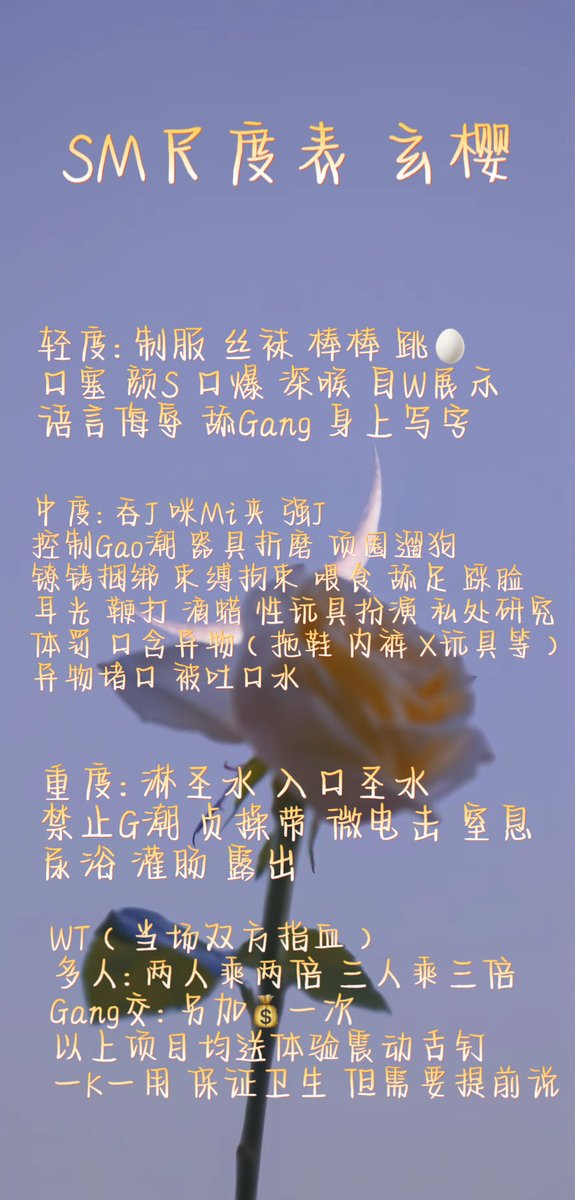 SM尺度表 玄樱
轻度: 制服 丝袜 棒棒 跳🥚
口塞 颜S 口爆 深喉 自W展示
语言侮辱 舔Gang 身上写字
中度: 吞J 咪Mi夹 强J
控制Gao潮 器具折磨 项圈遛狗
镣铐捆绑 束缚拘束 喂食 舔足 踩脸
耳光 鞭打 滴蜡 性玩具扮演 私处研究
体罚 口含异物（拖鞋 内裤 X玩具等）
异物堵口 被吐口水
重度: 淋圣水 入口圣水
禁止G潮 贞操带 微电击 窒息
尿浴 灌肠 露出
WT（当场双方指血）
多人: 两人乘两倍 三人乘三倍
Gang交: 另加💰一次
以上项目均送体验震动舌钉
一K一用 保证卫生 但需要提前说